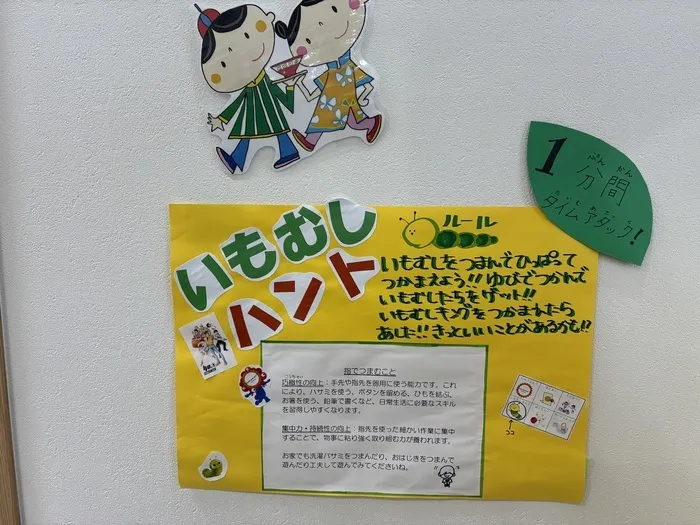 1
ぷん かん
分間
たいむ あたっく
タイムアタック!
いもむし
ハント
ルール
いもむしをつまんでひっぱって
つかまえよう!!ゆびでつかんで
いもむしたちをゲット!!
いもむしキングをつかまえたら
きっといいことがあるかも!!
指でつまむこと
こうちせい
巧緻性の向上:手先や指先を器用に使う能力です。これ
により、ハサミを使う、ボタンを留める、ひもを結ぶ、
お箸を使う、鉛筆で書くなど、日常生活に必要なスキル
を習得しやすくなります。
集中力・持続性の向上:指先を使った細かい作業に集中
することで、物事に粘り強く取り組む力が養われます。
お家でも洗濯バサミをつまんだり、おはじきをつまんで
遊んだり工夫して遊んでみてくださいね。
ココ